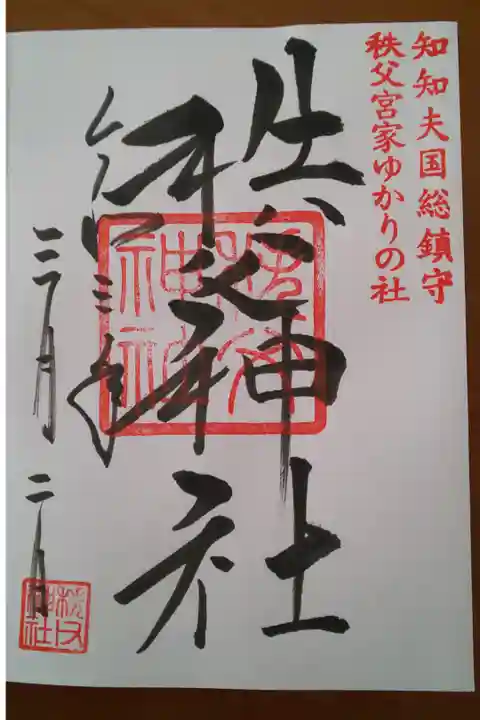 知知夫国総鎮守
秩父宮家ゆかりの社
秩父神社
令和三年
三月二日
秩父神社
秩父神社